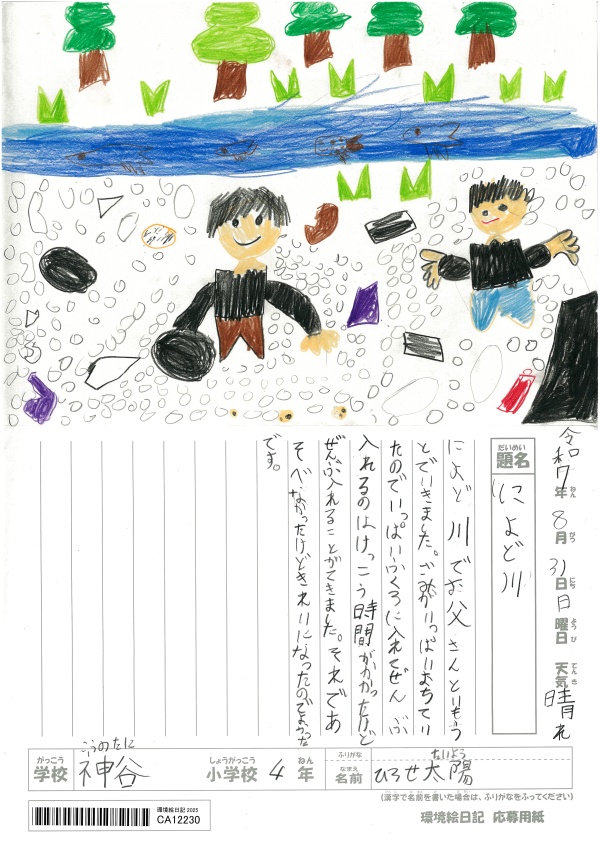 令和7年ねん8月がつ31日にち日曜日ようび天気てんき晴れ
だいめい
題名
によど川
によど川でお父さんといもう
とでいきました。ごみがいっぱいおちてい
たのでいっぱいふくろに入れてぜんぶ
入れるのはけっこう時間がかかったけど
ぜんぶ入れることができました。それであ
そべなかったけどきれいになったのでよかった
です。
こうのたに
がっこう
学校 神谷
しょうがっこう ねん
小学校 4 年
ふりがな たいよう
なまえ
名前 ひろせ太陽
(漢字で名前を書いた場合は、ふりがなをふってください)
環境絵日記 2025
CA12230
環境絵日記 応募用紙